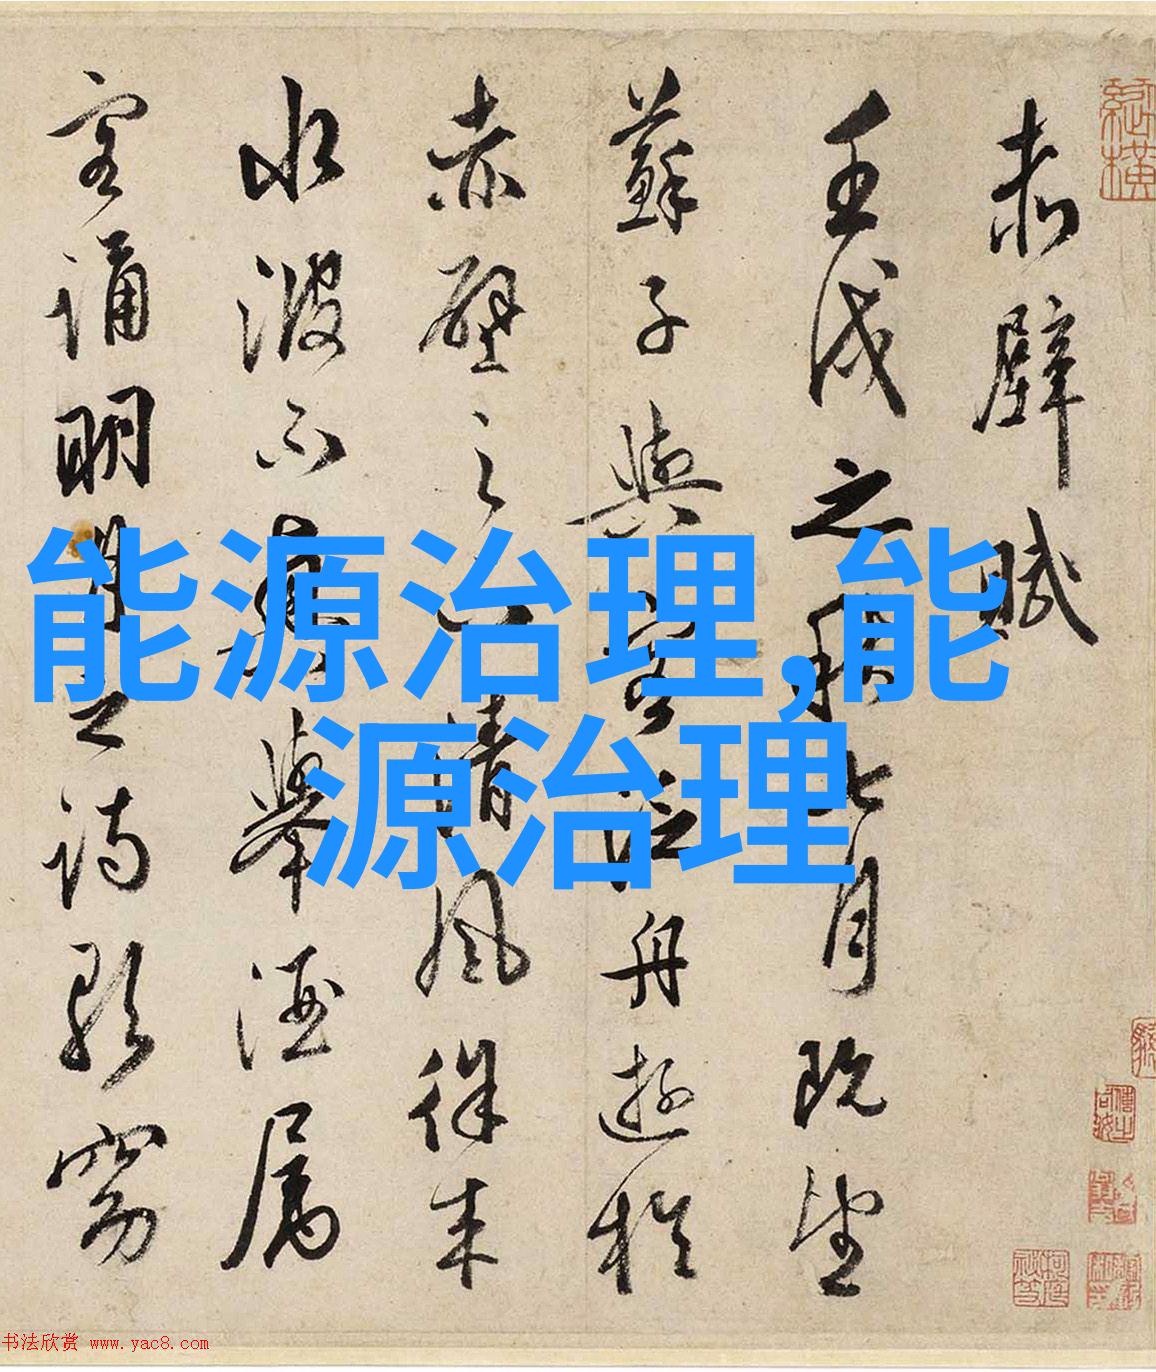 赤壁賦
壬戌之秋七月既望
蘇子與客泛舟遊於
赤壁之下清風徐来
水波不興舉酒属
客誦明月之詩歌窈
能源治理,能
源治理
书法欣赏 www.yac8.com